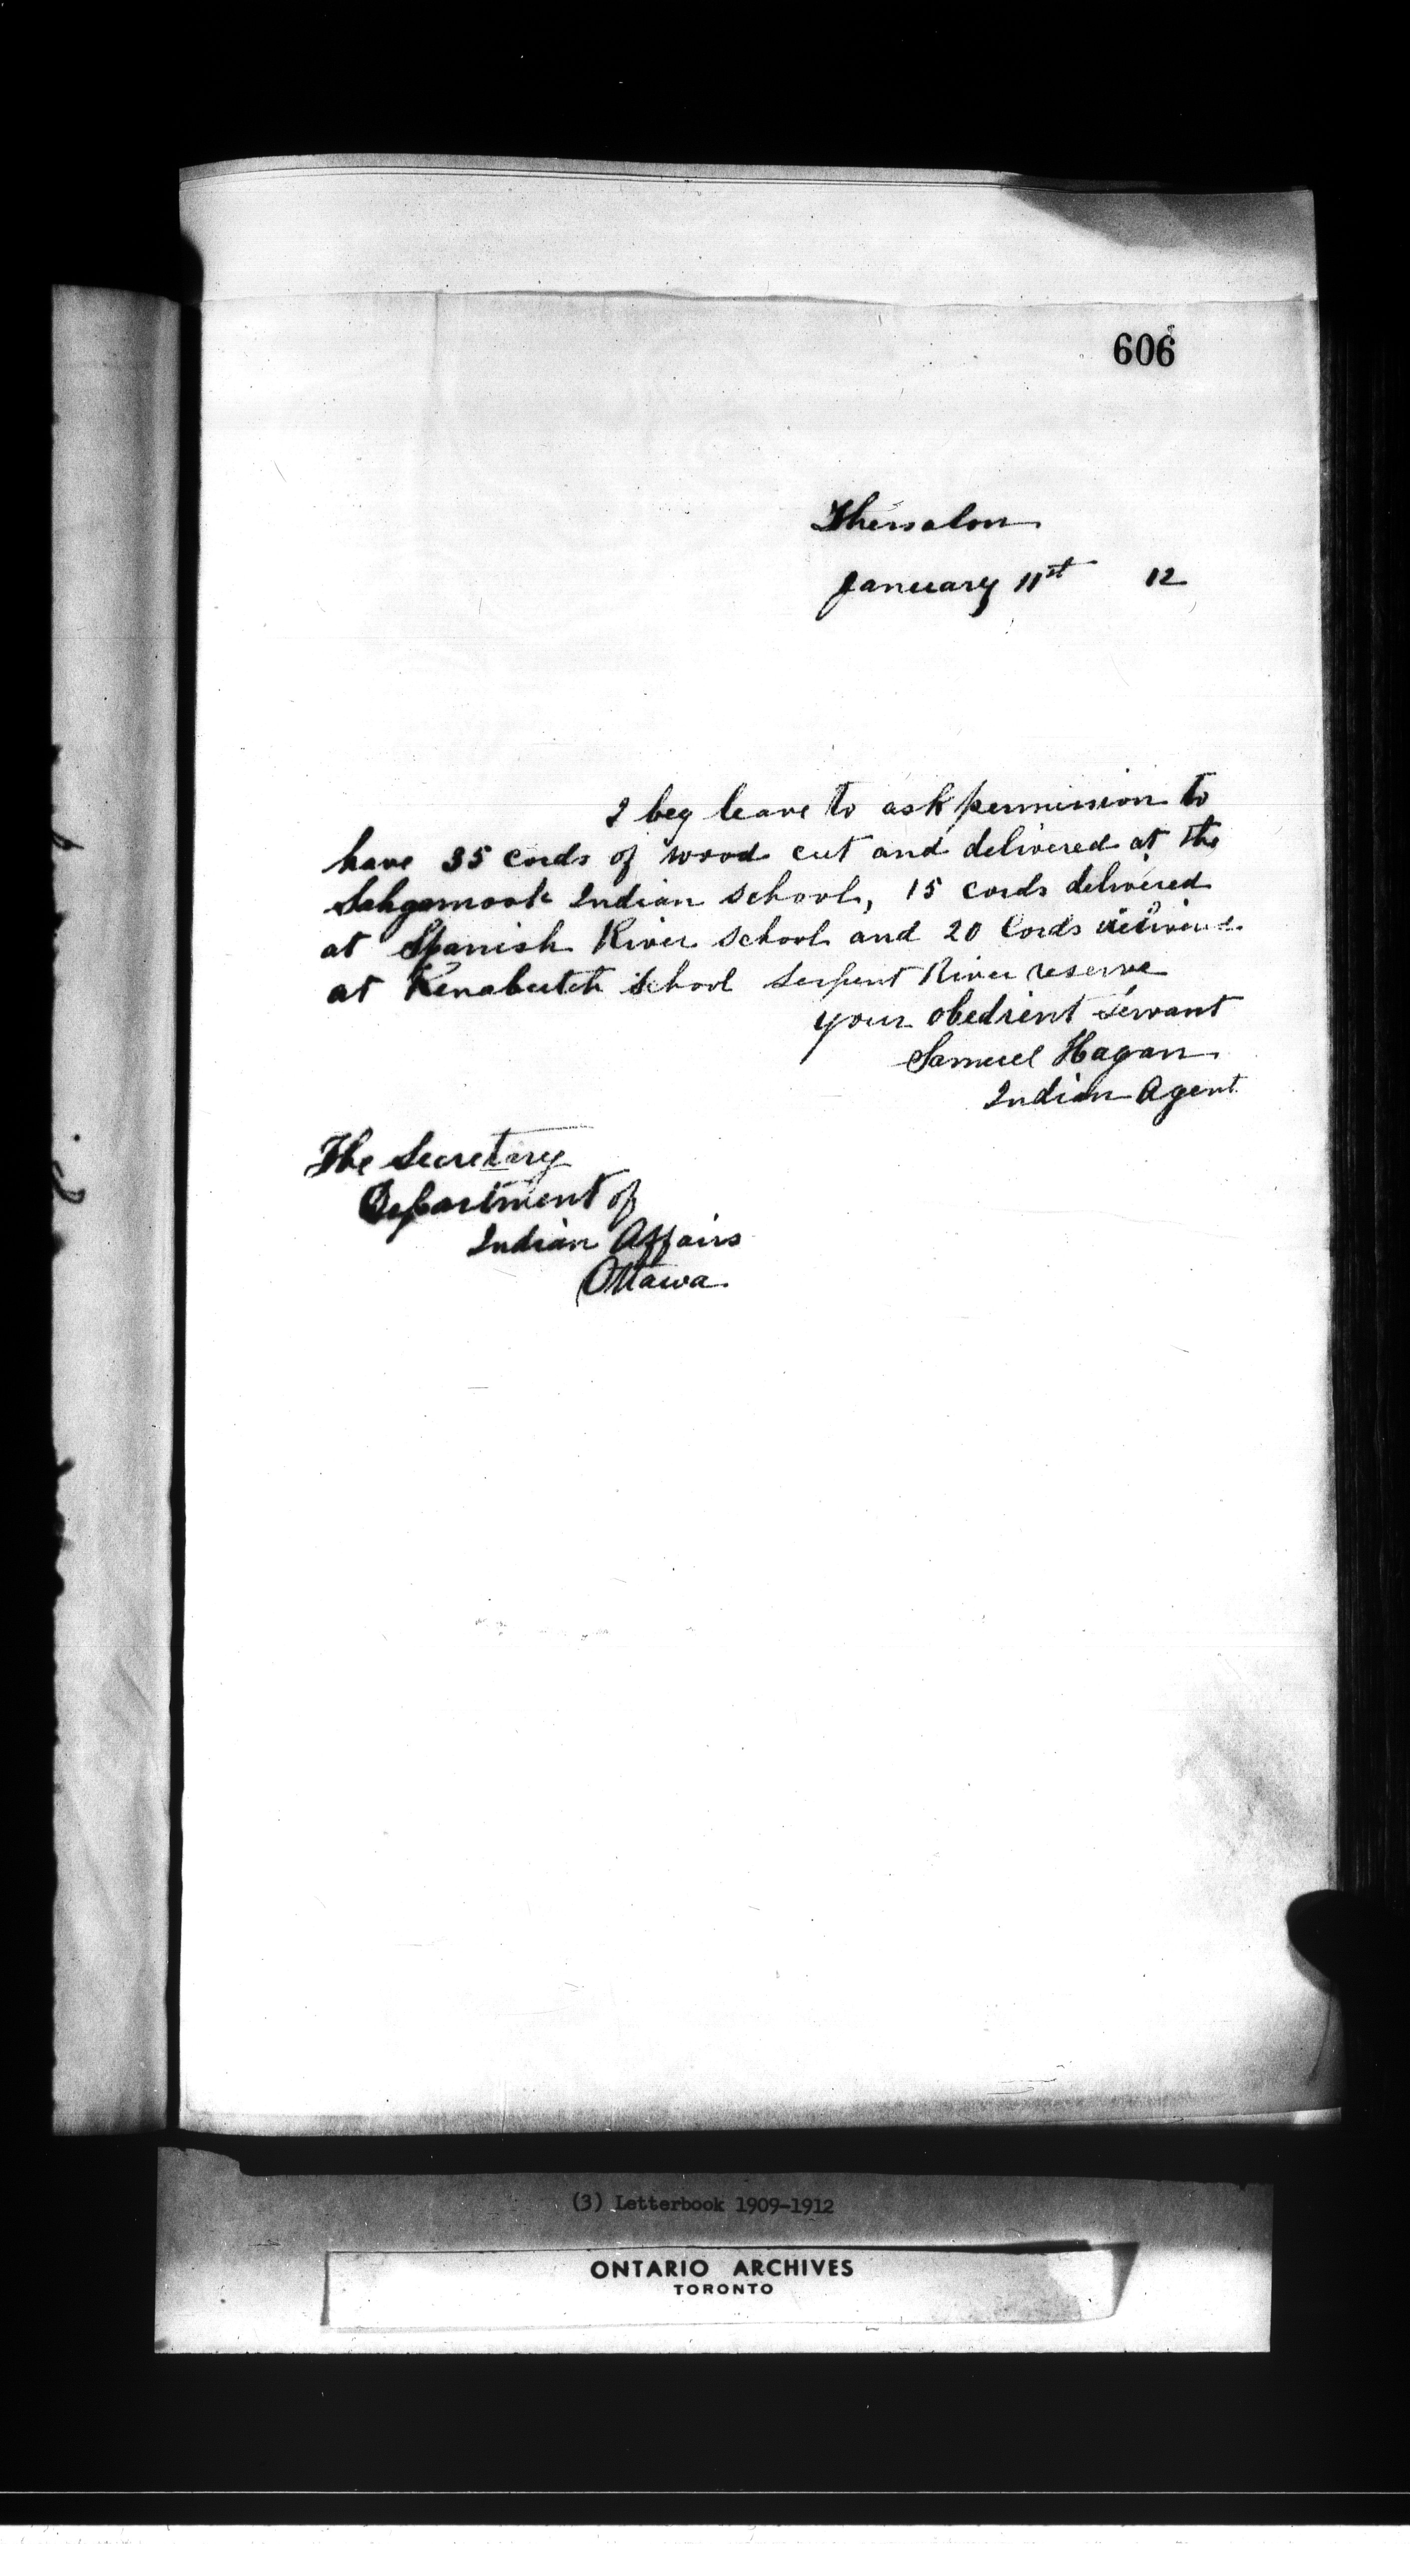 606
Thessalon
January 11st 12
I beg leave to ask permission to
have 35 cords of wood cut and delivered at the
Sahgamook Indian School, 15 cords delivered
at Spanish River School and 20 Cords delivered
at Kenabutch School Serpent River reserve
your obedient servant
Samuel Hagan
Indian Agent
The Secretary
Department of
Indian Affairs
Ottawa
(3) Letterbook 1909-1912
ONTARIO ARCHIVES
TORONTO